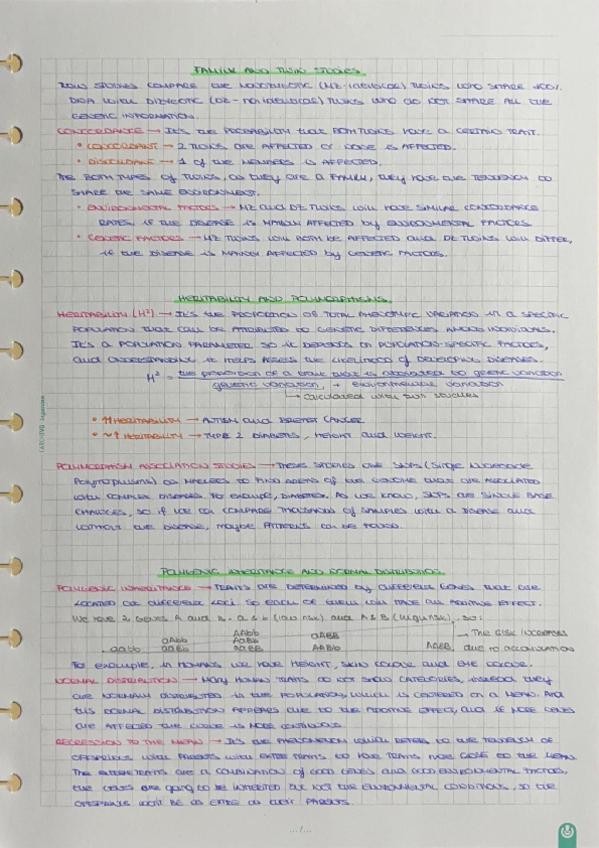 FAMILY AND TWIN STUDIES
TWIN STUDIES COMPARE THE MONOZYGOTIC (MZ-identical) TWINS WHO SHARE 100%
DNA WITH DIZYGOTIC (DZ - no identical) TWINS WHO DO NOT SHARE ALL THE
GENETIC INFORMATION.
CONCORDANCE → IT'S THE PROBABILITY that BOTH TWINS HAVE A CERTAIN TRAIT.
• CONCORDANT → 2 TWINS ARE AFFECTED or NONE IS AFFECTED.
• DISCORDANT → 1 of the MEMBERS IS AFFECTED.
BOTH TYPES of TWINS, as they are a FAMILY, they HAVE the TENDENCY to
SHARE the SAME ENVIRONMENT.
• ENVIRONMENTAL FACTORS → MZ and DZ TWINS will HAVE SIMILAR CONCORDANCE
RATES, if the DISEASE is MAINLY AFFECTED by ENVIRONMENTAL FACTORS
• GENETIC FACTORS → MZ TWINS will BOTH BE AFFECTED and DZ TWINS will DIFFER,
if the DISEASE is MAINLY AFFECTED by GENETIC FACTORS.
HERITABILITY AND POLYMORPHISMS
HERITABILITY (H²) → IT'S the PROPORTION of TOTAL PHENOTYPIC VARIATION in a SPECIFIC
POPULATION that CAN BE ATTRIBUTED to GENETIC DIFFERENCES AMONG INDIVIDUALS.
IT'S A POPULATION PARAMETER so it DEPENDS on POPULATION-SPECIFIC FACTORS,
and UNDERSTANDING it HELPS ASSESS the LIKELIHOOD of DEVELOPING DISEASES.
H² = the proportion of a trait that is attributed to genetic variation
genetic variation + environmental variation
→ calculated with twin studies
• ↑↑ HERITABILITY → AUTISM and BREAST CANCER
• ~↑ HERITABILITY → TYPE 2 DIABETES, HEIGHT and WEIGHT.
POLYMORPHISM ASSOCIATION STUDIES → THESE STUDIES use SNPs (Single Nucleotide
Polymorphisms) as MARKERS to FIND AREAS of the GENOME that are ASSOCIATED
with COMPLEX DISEASES. For example, DIABETES. As we KNOW, SNPs are SINGLE BASE
CHANGES, so if we can COMPARE THOUSANDS of SAMPLES with a DISEASE and
without the DISEASE, maybe PATTERNS can be FOUND.
POLYGENIC INHERITANCE AND NORMAL DISTRIBUTION
POLYGENIC INHERITANCE → TRAITS ARE DETERMINED by DIFFERENT GENES that are
LOCATED at DIFFERENT LOCI. So EACH of them will HAVE AN ADDITIVE EFFECT.
We have 2 genes A and B. a & b (low risk) and A & B (high risk), so:
AAbb → The RISK INCREASES
aAbb AaBb aABB
aabb aaBb AaBB AABB due to accumulation
For example, in HUMANS we HAVE HEIGHT, SKIN COLOUR and EYE COLOUR.
NORMAL DISTRIBUTION → MANY HUMAN TRAITS do NOT SHOW CATEGORIES, INSTEAD they
are NORMALLY DISTRIBUTED in the POPULATION, WHICH is CENTERED on a MEAN. And
this NORMAL DISTRIBUTION APPEARS due to the ADDITIVE EFFECT, and if MORE GENES
are AFFECTED the CURVE is MORE CONTINUOUS.
REGRESSION TO THE MEAN → IT'S the PHENOMENON which REFERS to the TENDENCY of
OFFSPRING with PARENTS with EXTREME TRAITS to HAVE TRAITS MORE CLOSE to the MEAN.
The EXTREME TRAITS are a COMBINATION of GOOD GENES and GOOD ENVIRONMENTAL FACTORS,
the GENES are GOING to BE INHERITED but NOT the ENVIRONMENTAL CONDITIONS, so the
OFFSPRING WON'T BE as EXTREME as their PARENTS.
.../...